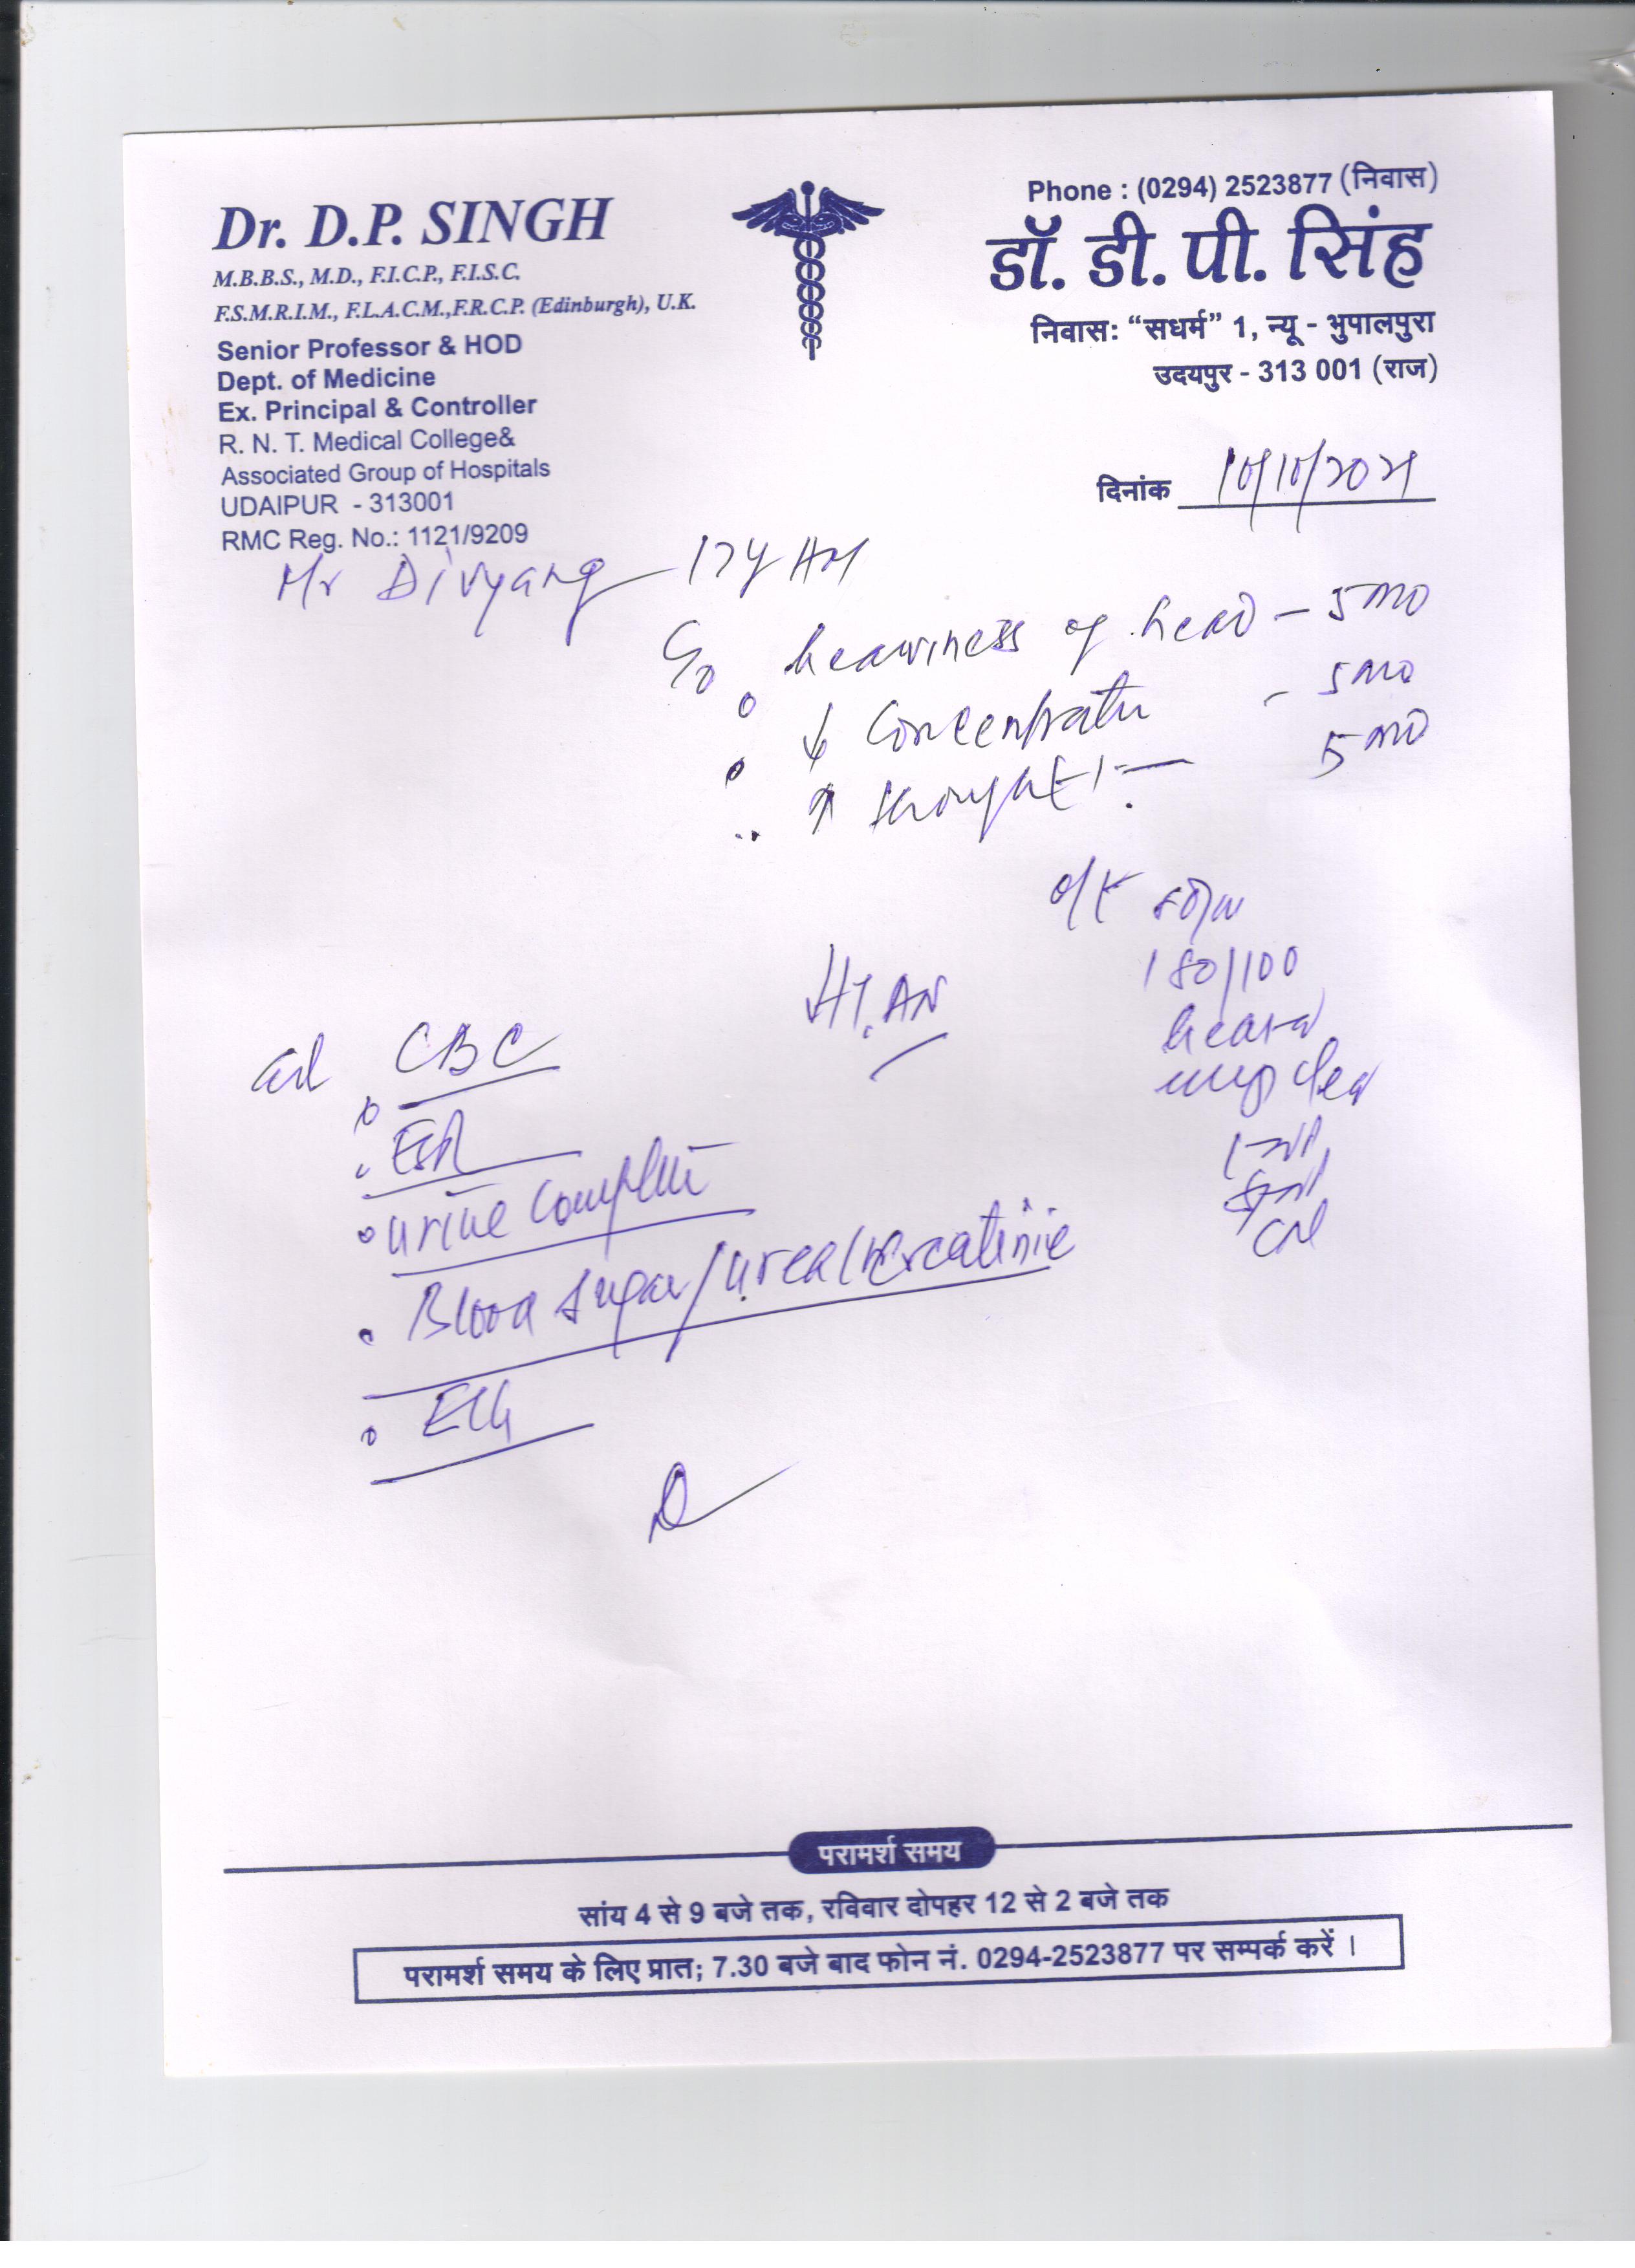 Phone : (0294) 2523877 (निवास)
Dr. D.P. SINGH
डॉ. डी. पी. सिंह
M.B.B.S., M.D., F.I.C.P., F.I.S.C.
F.S.M.R.I.M., F.L.A.C.M.,F.R.C.P. (Edinburgh), U.K.
निवासः “सधर्म” 1, न्यू - भुपालपुरा
उदयपुर - 313 001 (राज)
Senior Professor & HOD
Dept. of Medicine
Ex. Principal & Controller
R. N. T. Medical College&
Associated Group of Hospitals
UDAIPUR - 313001
RMC Reg. No.: 1121/9209
दिनांक 10/10/2021
Mr Divyang 17y
heaviness of head - 5 mo
↓ - 5 mo
↑ thought 5 mo
O/E
180/100
CBC
ESR
urine
Blood sugar/urea/
ECG
परामर्श समय
सांय 4 से 9 बजे तक, रविवार दोपहर 12 से 2 बजे तक
परामर्श समय के लिए प्रात; 7.30 बजे बाद फोन नं. 0294-2523877 पर सम्पर्क करें ।